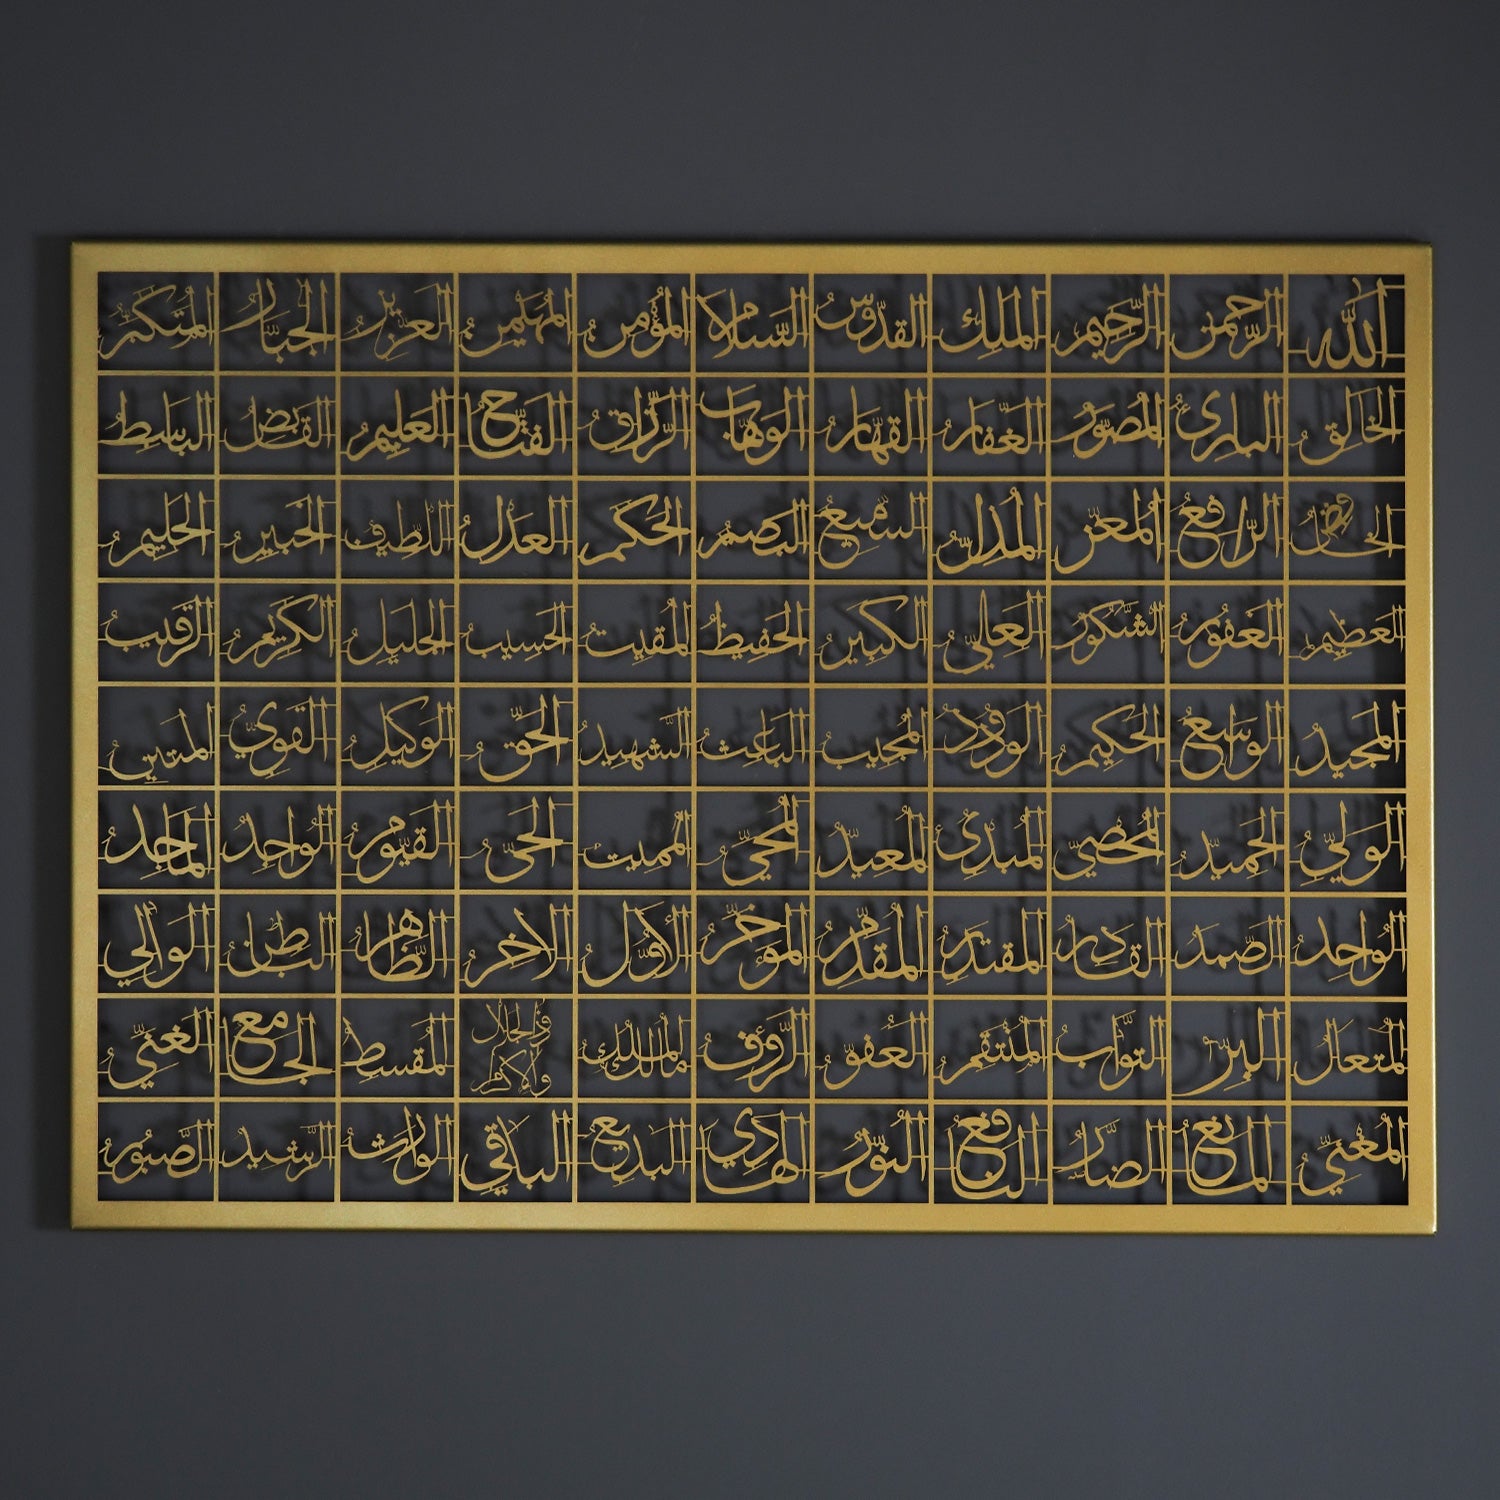 الله الرحمن الرحيم الملك القدوس السلام المؤمن المهيمن العزيز الجبار المتكبر
الخالق البارئ المصور الغفار القهار الوهاب الرزاق الفتاح العليم القابض الباسط
الخافض الرافع المعز المذل السميع البصير الحكم العدل اللطيف الخبير الحليم
العظيم الغفور الشكور العلي الكبير الحفيظ المقيت الحسيب الجليل الكريم الرقيب
المجيد الواسع الحكيم الودود المجيب الباعث الشهيد الحق الوكيل القوي المتين
الولي الحميد المحصي المبدئ المعيد المحيي المميت الحي القيوم الواحد الماجد
الواحد الصمد القادر المقتدر المقدم المؤخر الأول الاخر الظاهر الباطن الوالي
المتعال البر التواب المنتقم العفو الرؤف الملك ذو الجلال والاكرام المقسط الجامع الغني
المغني المانع الضار النافع النور الهادي البديع الباقي الوارث الرشيد الصبور